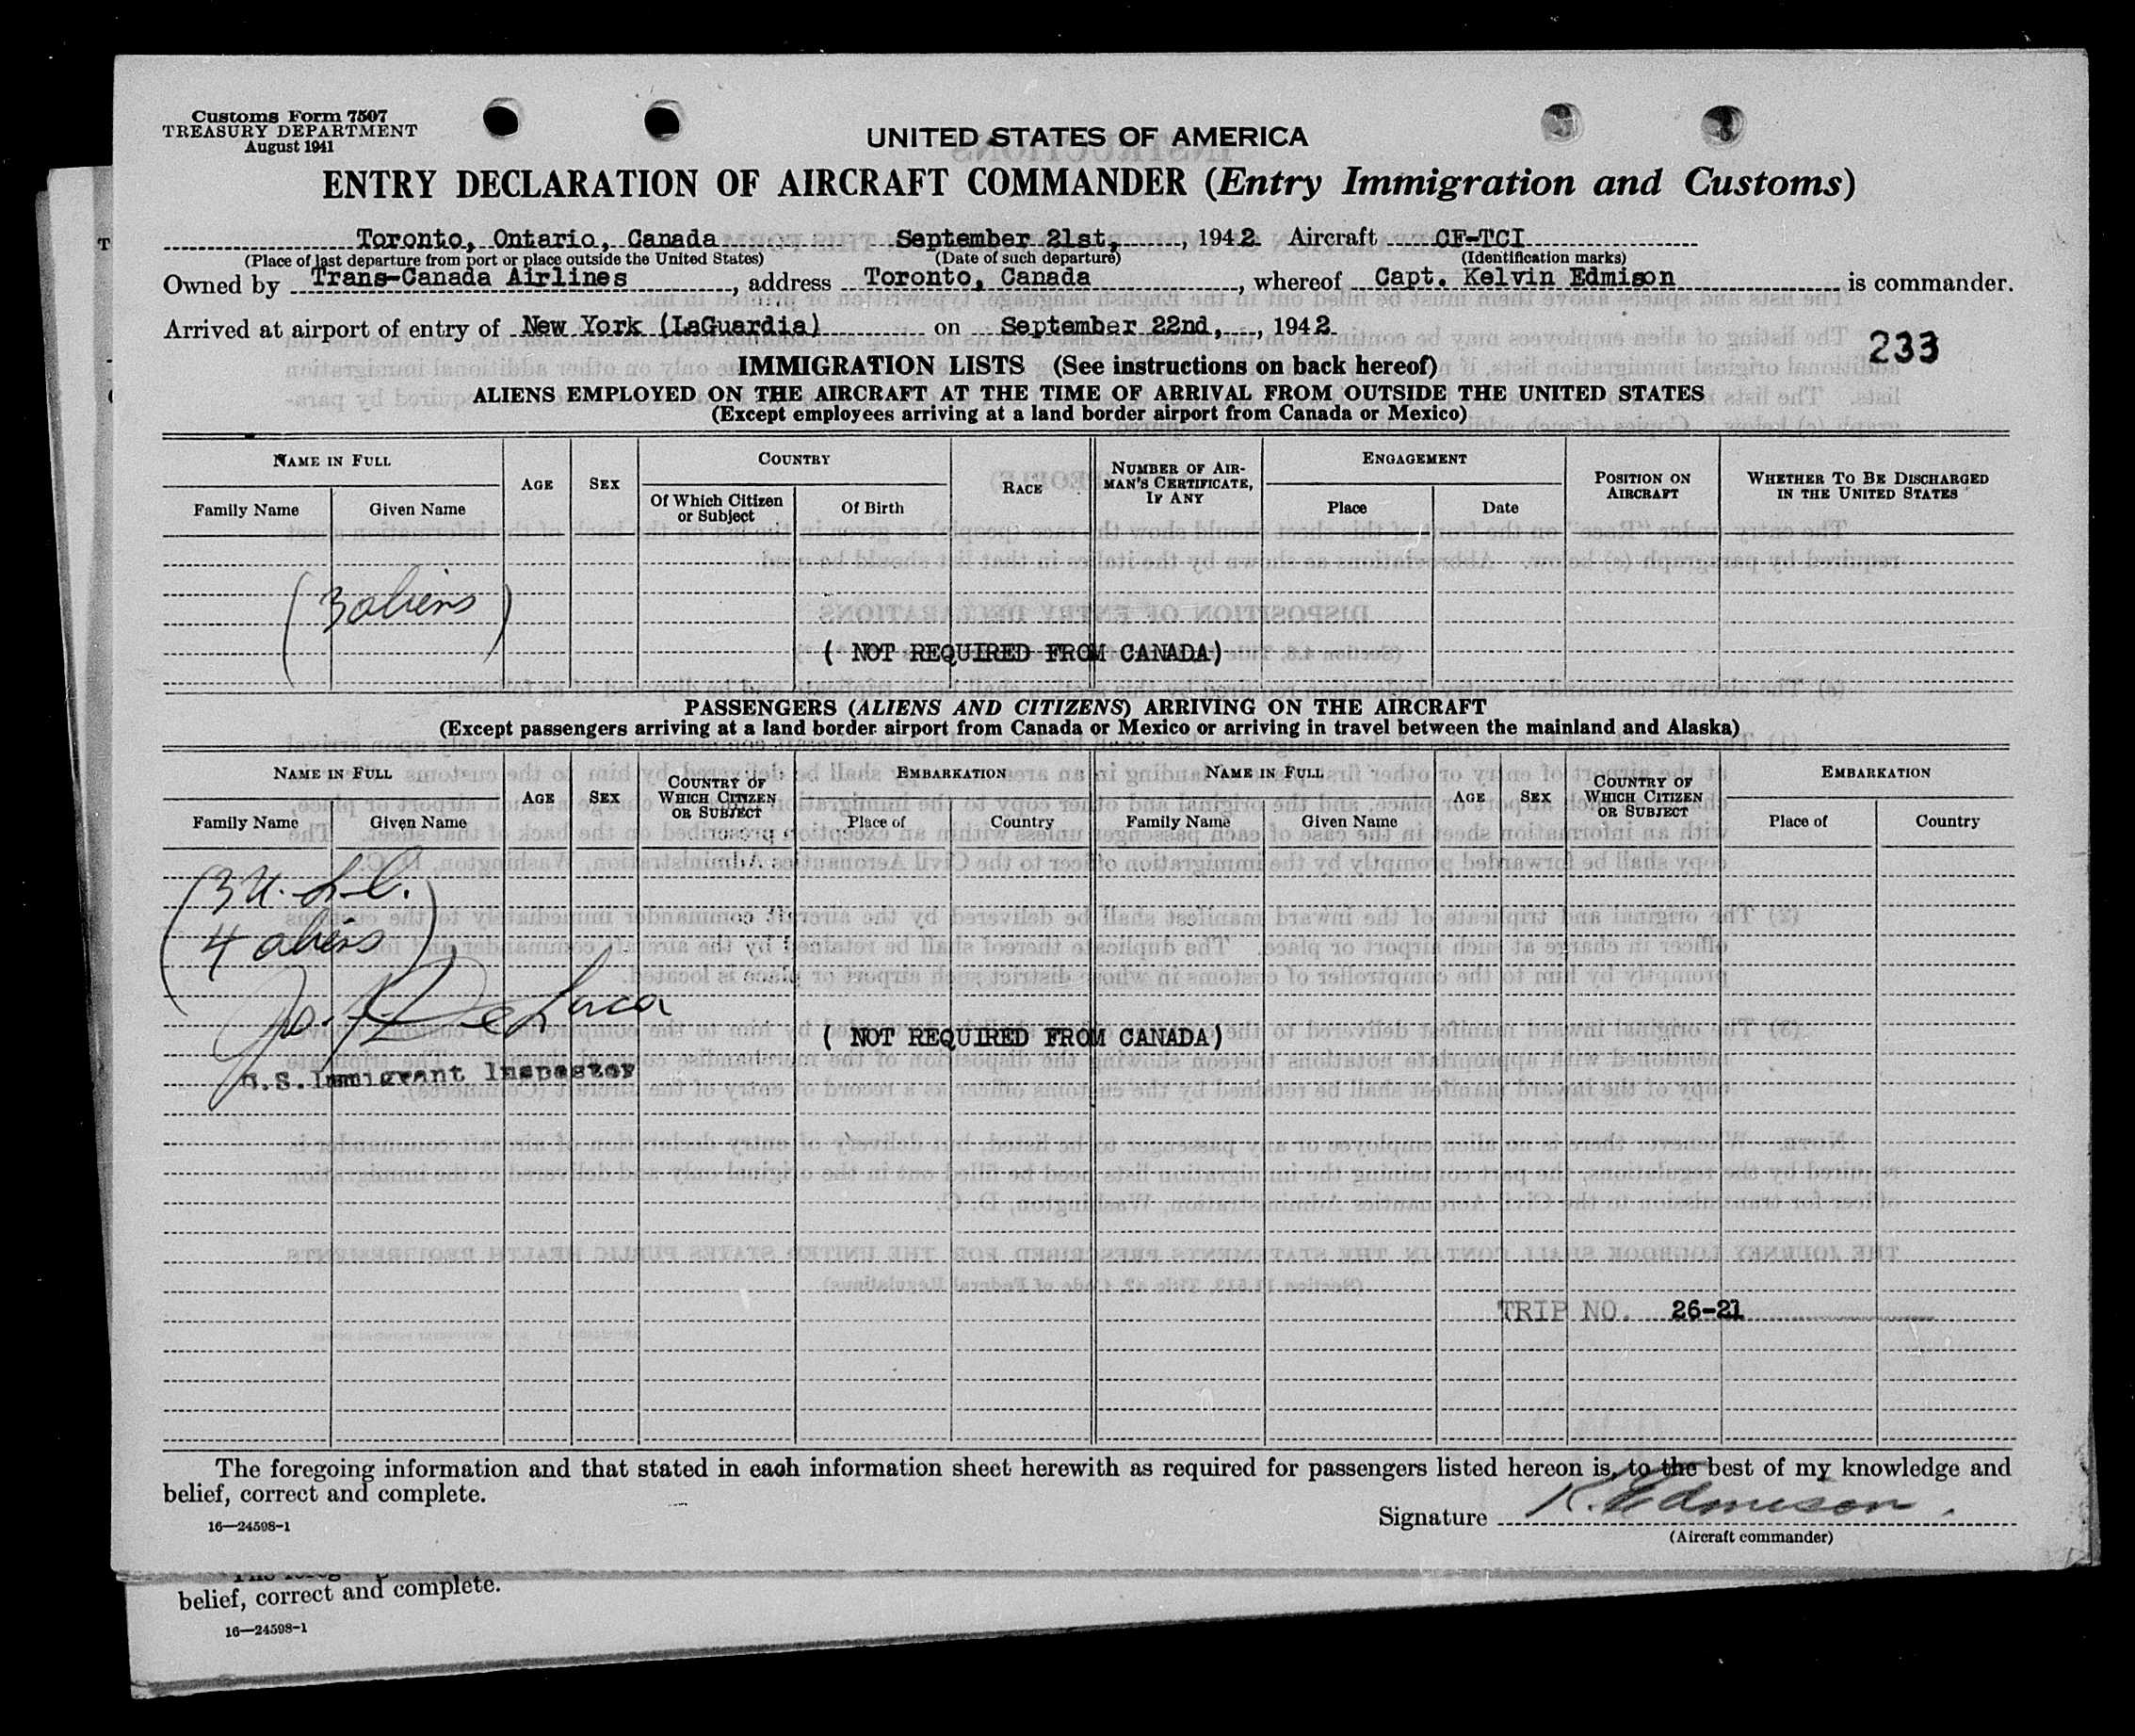 Customs Form 7507
TREASURY DEPARTMENT
August 1941
UNITED STATES OF AMERICA
ENTRY DECLARATION OF AIRCRAFT COMMANDER (Entry Immigration and Customs)
Toronto, Ontario, Canada September 21st, , 1942 Aircraft CF-TCI
(Place of last departure from port or place outside the United States) (Date of such departure) (Identification marks)
Owned by Trans-Canada Airlines , address Toronto, Canada , whereof Capt. Kelvin Edmison is commander.
Arrived at airport of entry of New York (LaGuardia) on September 22nd, , 1942
233
IMMIGRATION LISTS (See instructions on back hereof)
ALIENS EMPLOYED ON THE AIRCRAFT AT THE TIME OF ARRIVAL FROM OUTSIDE THE UNITED STATES
(Except employees arriving at a land border airport from Canada or Mexico)
NAME IN FULL AGE SEX COUNTRY RACE NUMBER OF AIR-MAN'S CERTIFICATE, IF ANY ENGAGEMENT POSITION ON AIRCRAFT WHETHER TO BE DISCHARGED IN THE UNITED STATES
Family Name Given Name Of Which Citizen or Subject Of Birth Place Date
(3 aliens)
( NOT REQUIRED FROM CANADA)
PASSENGERS (ALIENS AND CITIZENS) ARRIVING ON THE AIRCRAFT
(Except passengers arriving at a land border airport from Canada or Mexico or arriving in travel between the mainland and Alaska)
NAME IN FULL AGE SEX COUNTRY OF WHICH CITIZEN OR SUBJECT EMBARKATION NAME IN FULL AGE SEX COUNTRY OF WHICH CITIZEN OR SUBJECT EMBARKATION
Family Name Given Name Place of Country Family Name Given Name Place of Country
(3 U.S.C.
4 aliens)
De Luca
( NOT REQUIRED FROM CANADA)
U.S. Immigrant Inspector
TRIP NO. 26-21
The foregoing information and that stated in each information sheet herewith as required for passengers listed hereon is, to the best of my knowledge and
belief, correct and complete.
Signature K. Edmison
16—24598-1
(Aircraft commander)
belief, correct and complete.
16—24598-1